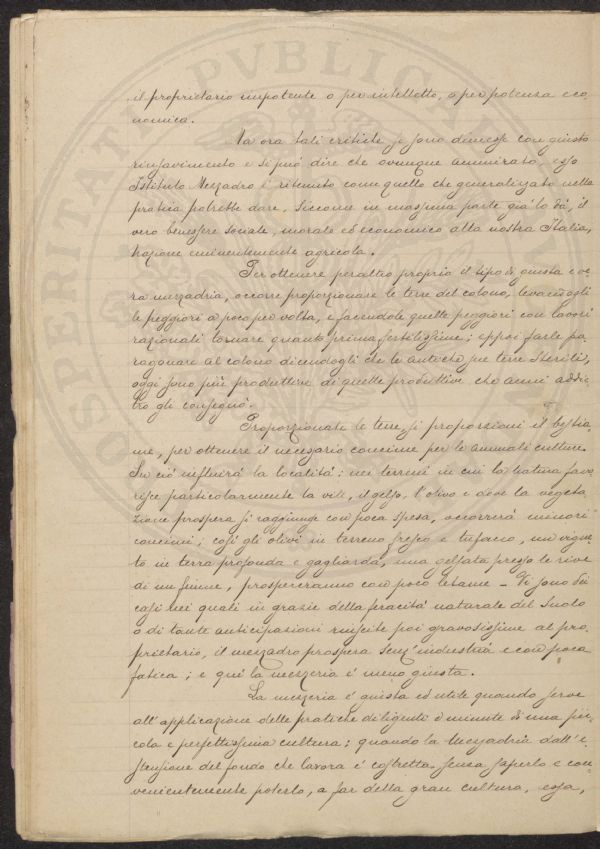 il proprietario impotente o per intelletto, o per potenza eco-
nomica.
Ma ora tali critiche si sono dimesse con giusto
rinsavimento e si può dire che ovunque ammirato, esso
Istituto Mezzadro è ritenuto come quello che generalizzato nella
pratica potrebbe dare, siccome in massima parte già lo dà, il
vero benessere sociale, morale ed economico alla nostra Italia,
Nazione eminentemente agricola.
Per ottenere peraltro proprio il tipo di giusta e ve-
ra mezzadria, occorre proporzionare le terre del colono, levandogli
le peggiori a poco per volta, e facendole quelle peggiori con lavori
razionali tornare quanto prima fertilissime; eppoi farle pa-
ragonare al colono dicendogli che le antiche sue terre sterili,
oggi sono più produttive di quelle produttive che anni addie-
tro gli consegnò.
Proporzionate le terre, si proporzioni il bestia-
me, per ottenere il necessario concime per le annuali culture.
In ciò influirà la località: nei terreni in cui la natura favo-
risce particolarmente la vite, il gelso, l'olivo e dove la vegeta-
zione prospera si raggiunge con poca spesa, occorrerà minori
concimi; così gli olivi in terreno fresco e tufaceo, un vigne-
to in terra profonda e gagliarda, una gelsata presso le rive
di un fiume, prospereranno con poco letame - Vi sono dei
casi nei quali in grazie della feracità naturale del suolo
o di tante anticipazioni riuscite poi gravosissime al pro-
prietario, il mezzadro prospera senz'industria e con poca
fatica; e qui la mezzeria è meno giusta.
La mezzeria è giusta ed utile quando serve
all'applicazione delle pratiche diligenti e minute di una pic-
cola e perfettissima cultura; quando la Mezzadria dall'e-
stensione del fondo che lavora è costretta, senza saperlo e con-
venientemente poterlo, a far della gran cultura, essa,